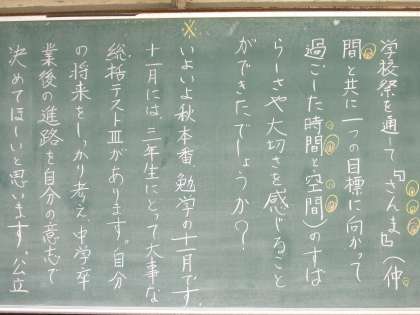 学校祭を通して『さんま』(仲
間と共に一つの目標に向かって
過ごした時間と空間)のすば
らしさや大切さを感じること
ができたでしょうか?
※
いよいよ秋本番、勉学の十一月です。
十一月には、三年生にとって大事な
総括テストⅢがあります。自分
の将来をしっかり考え、中学卒
業後の進路を自分の意志で
決めてほしいと思います。公立